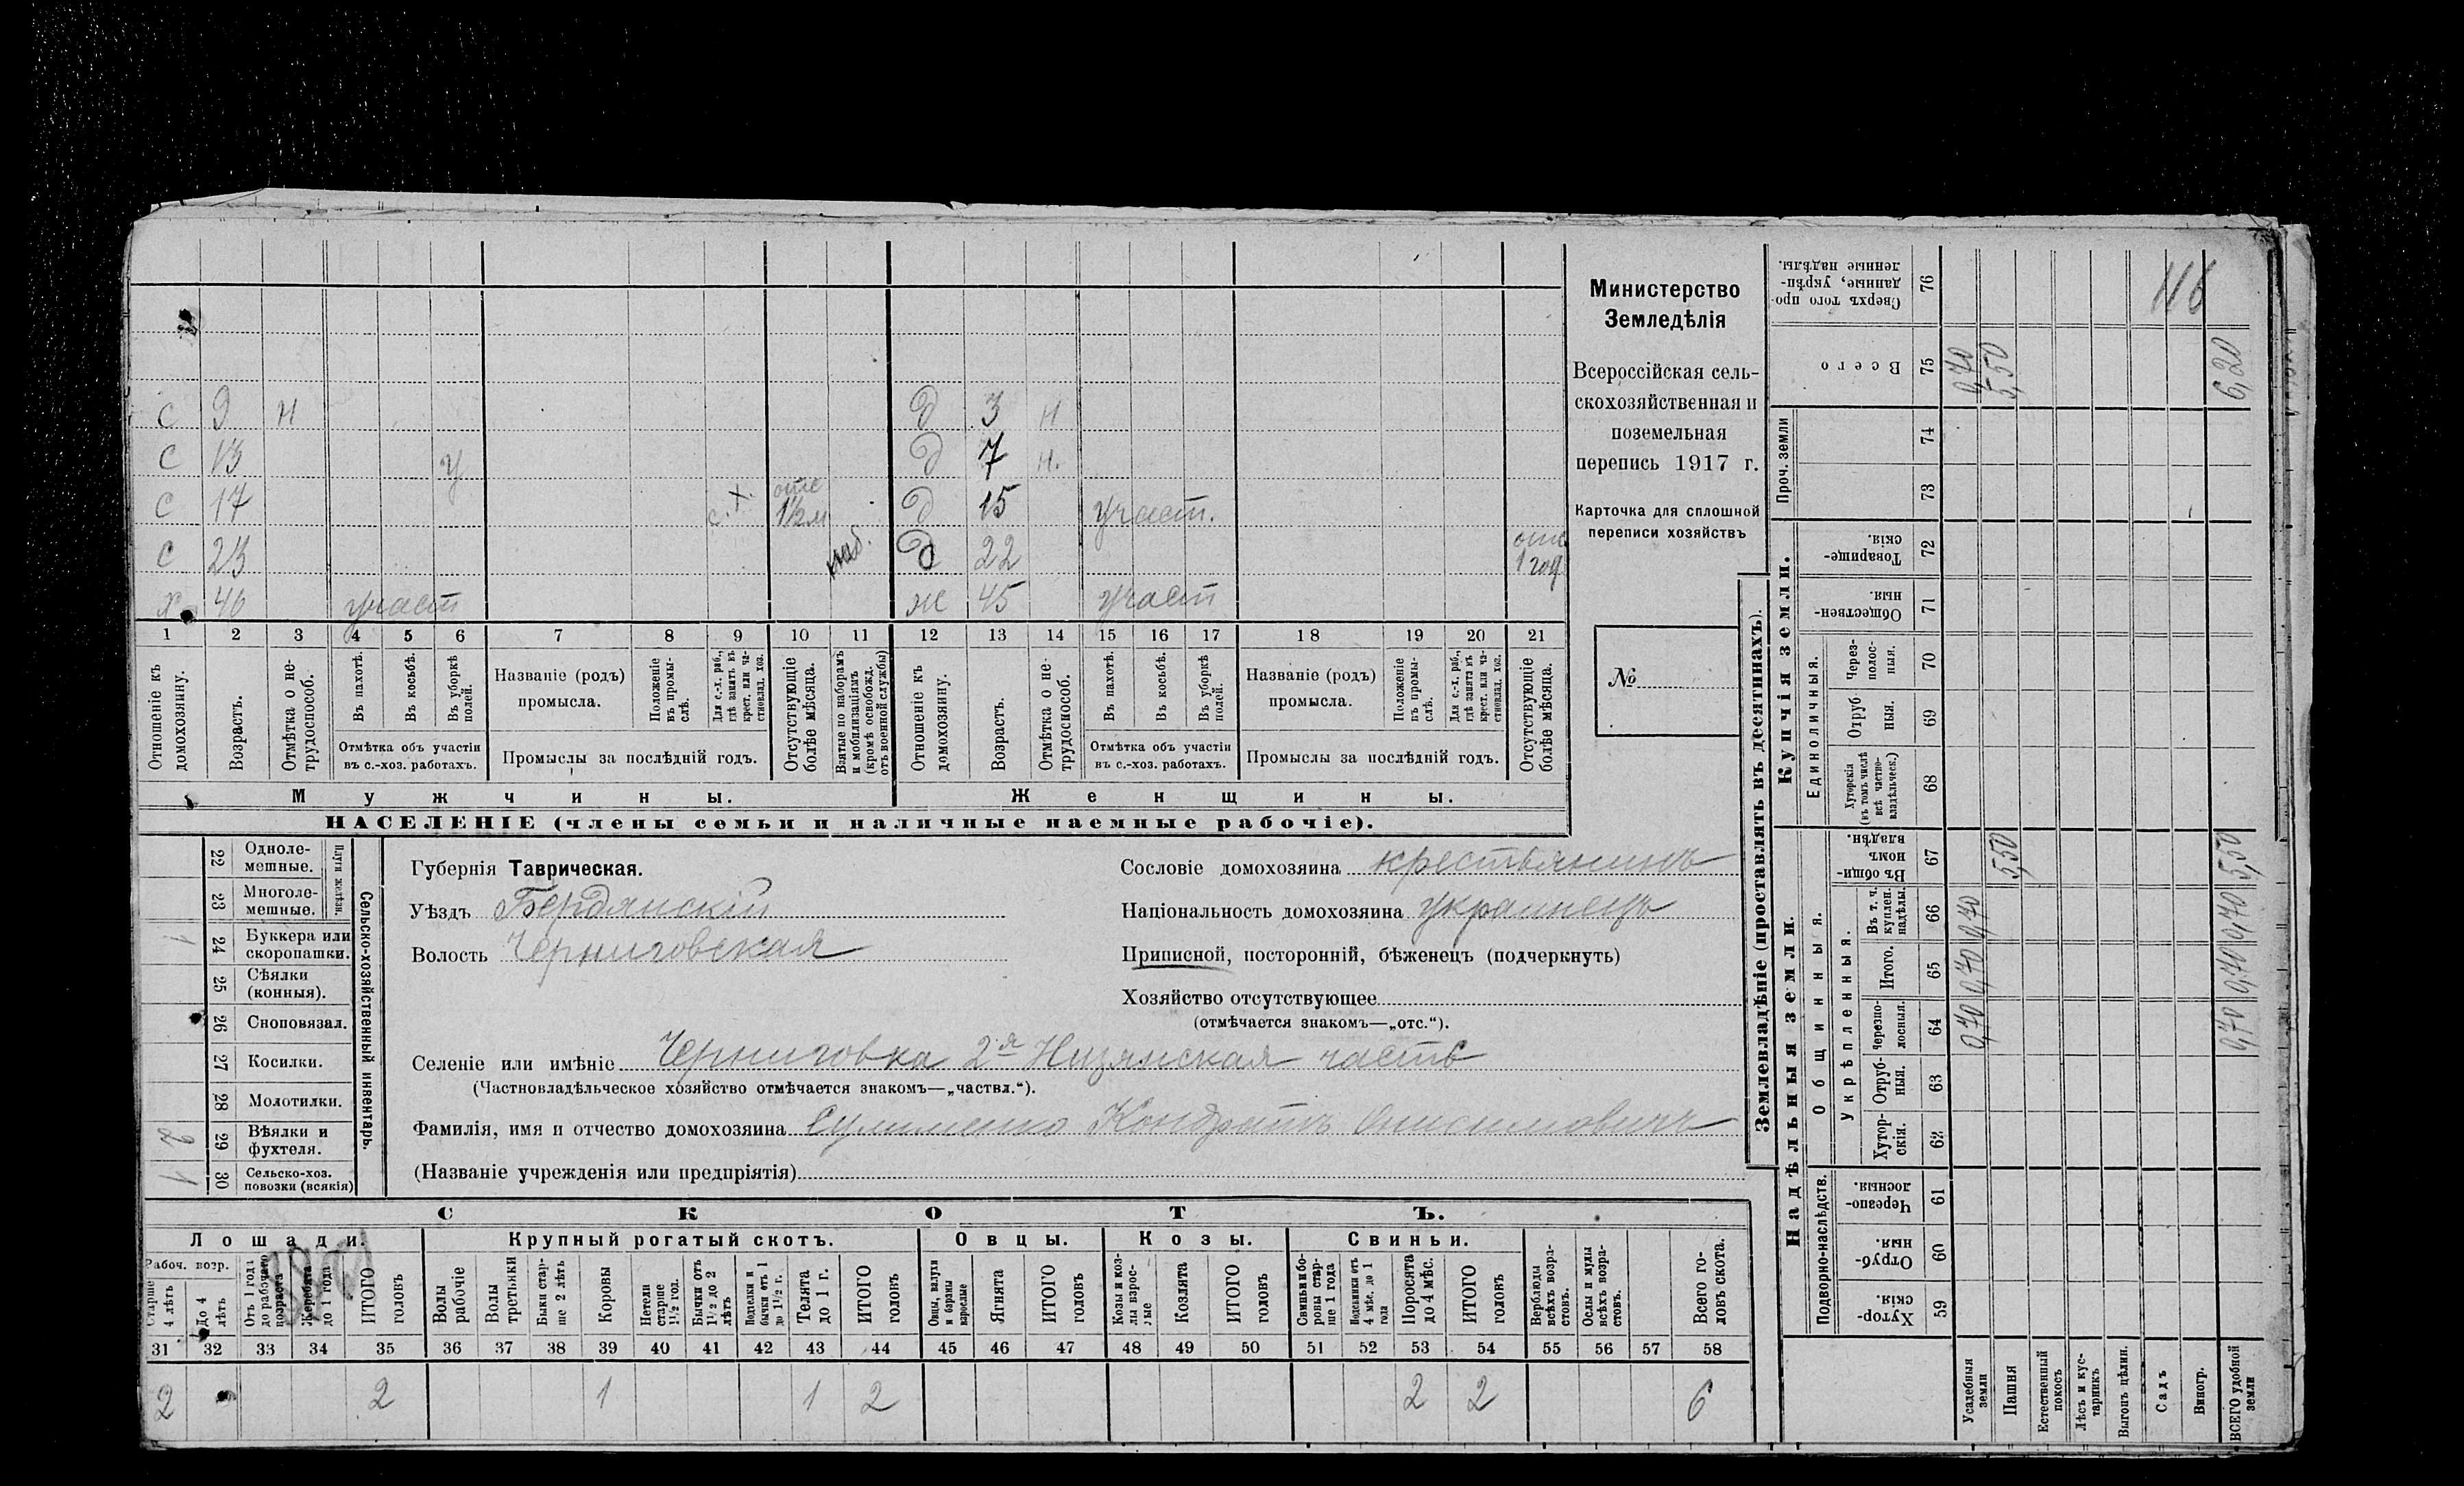 С 9 Н Д 3 Н
С 13 У Д 7 Н.
С 17 с.х. отс 1½ м Д 15 участ.
С 23 наб. Д 22 отс 1 год
Х 46 участ Ж 45 участ
1 2 3 4 5 6 7 8 9 10 11 12 13 14 15 16 17 18 19 20 21
Отношеніе къ домохозяину.
Возрастъ.
Отмѣтка о не-трудоспособ.
Въ пахотѣ.
Въ косьбѣ.
Въ уборкѣ полей.
Отмѣтка объ участіи въ с.-хоз. работахъ.
Названіе (родъ) промысла.
Положеніе въ промы-слѣ.
Для с.-х. раб., гдѣ занятъ въ крест. или ча-стновлад. хоз.
Промыслы за послѣдній годъ.
Отсутствующіе болѣе мѣсяца.
Взятые по наборамъ и мобилизаціямъ (кромѣ освобожд. отъ военной службы)
Отношеніе къ домохозяину.
Возрастъ.
Отмѣтка о не-трудоспособ.
Въ пахотѣ.
Въ косьбѣ.
Въ уборкѣ полей.
Отмѣтка объ участіи въ с.-хоз. работахъ.
Названіе (родъ) промысла.
Положеніе въ промы-слѣ.
Для с.-х. раб., гдѣ занята въ крест. или ча-стновлад. хоз.
Промыслы за послѣдній годъ.
Отсутствующіе болѣе мѣсяца.
Мужчины.
Женщины.
НАСЕЛЕНІЕ (члены семьи и наличные наемные рабочіе).
Министерство
Земледѣлія
Всероссійская сель-
скохозяйственная и
поземельная
перепись 1917 г.
Карточка для сплошной
переписи хозяйствъ
№
22 Одноле-мешные.
23 Многоле-мешные.
Плуги желѣзн.
24 Буккера или скоропашки. 1
25 Сѣялки (конныя).
26 Сноповязал.
27 Косилки.
28 Молотилки.
29 Вѣялки и фухтеля. 2
30 Сельско-хоз. повозки (всякія) 1
Сельско-хозяйственный инвентарь.
Губернія Таврическая.
Уѣздъ Бердянскій
Волость Черниговская
Сословіе домохозяина крестьянинъ
Національность домохозяина украинецъ
Приписной, посторонній, бѣженецъ (подчеркнуть)
Хозяйство отсутствующее
(отмѣчается знакомъ—„отс.“).
Селеніе или имѣніе Черниговка 2я Низянская часть
(Частновладѣльческое хозяйство отмѣчается знакомъ—„частвл.“).
Фамилія, имя и отчество домохозяина Сулименко Кондратъ Онисимовичъ
(Названіе учрежденія или предпріятія)
СКОТЪ.
Лошади.
Крупный рогатый скотъ.
Овцы.
Козы.
Свиньи.
Рабоч. возр.
Старше 4 лѣтъ
До 4 лѣтъ
Отъ 1 года до рабочаго возраста
Жеребята до 1 года
ИТОГО головъ
Волы рабочіе
Волы третьяки
Быки стар-ше 2 лѣтъ
Коровы
Нетели старше 1½ год.
Бычки отъ 1½ до 2 лѣтъ
Подтелки и бычки отъ 1 до 1½ г.
Телята до 1 г.
ИТОГО головъ
Овцы, валухи и бараны взрослые
Ягнята
ИТОГО головъ
Козы и коз-лы взрос-лые
Козлята
ИТОГО головъ
Свиньи и бо-ровы стар-ше 1 года
Подсвинки отъ 4 мѣс. до 1 года
Поросята до 4 мѣс.
ИТОГО головъ
Верблюды всѣхъ возра-стовъ.
Ослы и мулы всѣхъ возра-стовъ.
Всего го-ловъ скота.
31 32 33 34 35 36 37 38 39 40 41 42 43 44 45 46 47 48 49 50 51 52 53 54 55 56 57 58
2 2 1 1 2 2 2 6
Землевладѣніе (проставлять въ десятинахъ).
Надѣльныя земли.
Купчія земли.
Проч. земли
Подворно-наслѣдств.
Общинныя.
Укрѣпленныя.
Единоличныя.
Сверхъ того про-данные, укрѣп-ленные надѣлы. 76
116
Всего 75 0,70 5,50 6,20
74
73
Товарище-скія. 72
Обществен-ныя. 71
Через-полос-ныя. 70
Отруб ныя. 69
Хуторскія (въ томъ числѣ всѣ частно-владѣльческ.) 68
Въ общи-номъ владѣн. 67 5,50 5,50
Въ т. ч. куплен. надѣлы. 66 0,70 0,70
Итого. 65 0,70 0,70
Черезпо-лосныя. 64 0,70 0,70
Отруб-ныя. 63
Хутор-скія. 62
Черезпо-лосныя. 61
Отруб-ныя. 60
Хутор-скія. 59
Усадебныя земли
Пашня
Естественный покосъ
Лѣсъ и кус-тарникъ
Выгонъ цѣлин.
Садъ
Виногр.
ВСЕГО удобной земли